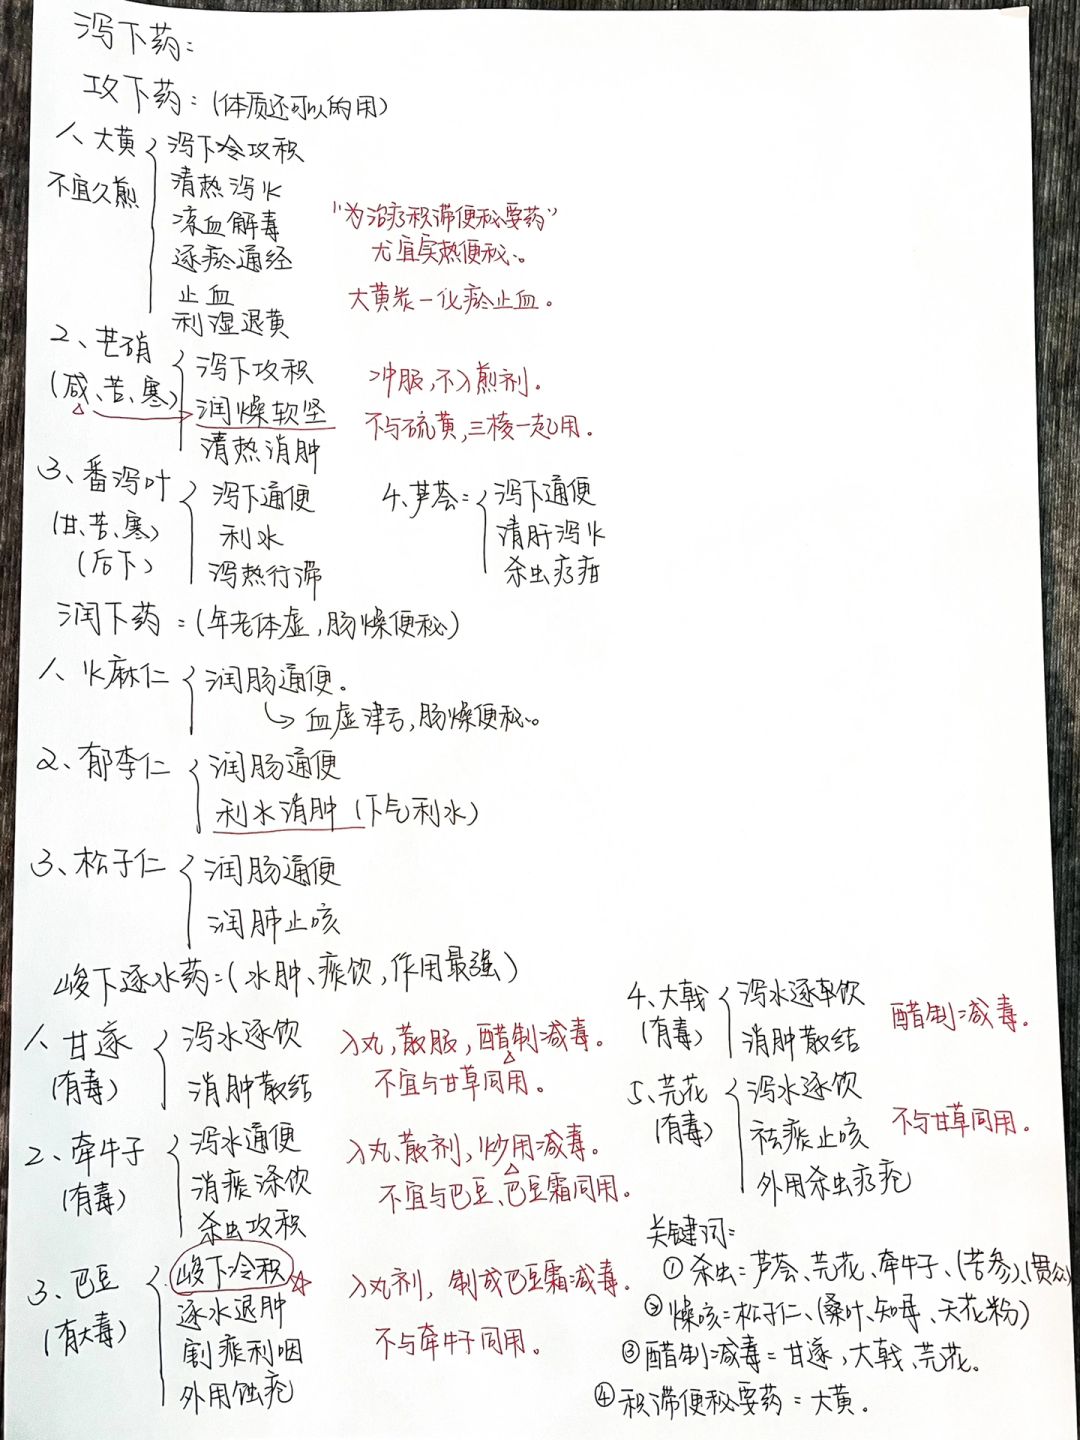 泻下药:
攻下药:(体质还可以的用)
1、大黄
不宜久煎
泻下冷攻积
清热泻火
凉血解毒
逐瘀通经
止血
利湿退黄
"为治疗积滞便秘要药"
尤宜实热便秘。
大黄炭—化瘀止血。
2、芒硝
(咸、苦、寒)
泻下攻积
润燥软坚
清热消肿
冲服,不入煎剂。
不与硫黄,三棱一起用。
3、番泻叶
(甘、苦、寒)
(后下)
泻下通便
利水
泻热行滞
4、芦荟=
泻下通便
清肝泻火
杀虫疗疳
润下药=(年老体虚,肠燥便秘)
1、火麻仁
润肠通便。
↳血虚津亏,肠燥便秘。
2、郁李仁
润肠通便
利水消肿(下气利水)
3、松子仁
润肠通便
润肺止咳
峻下逐水药=(水肿、痰饮,作用最强)
1、甘遂
(有毒)
泻水逐饮
消肿散结
入丸,散服,醋制减毒。
不宜与甘草同用。
2、牵牛子
(有毒)
泻水通便
消痰涤饮
杀虫攻积
入丸、散剂,炒用减毒。
不宜与巴豆、巴豆霜同用。
3、巴豆
(有大毒)
峻下冷积
逐水退肿
豁痰利咽
外用蚀疮
入丸剂,制成巴豆霜减毒。
不与牵牛子同用。
4、大戟
(有毒)
泻水逐饮
消肿散结
醋制减毒。
5、芫花
(有毒)
泻水逐饮
祛痰止咳
外用杀虫疗疮
不与甘草同用。
关键词=
①杀虫=芦荟、芫花、牵牛子、(苦参)、(贯众)
②燥咳=松子仁、(桑叶、知母、天花粉)
③醋制减毒=甘遂,大戟、芫花。
④积滞便秘要药=大黄。